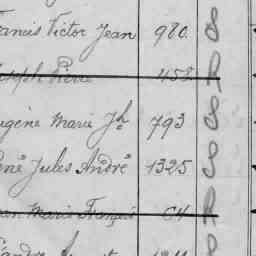 Francis Victor Jean 980
Joseph Pierre 458
Eugène Marie Jh 793
René Jules André 1325
Jean Marie François 64